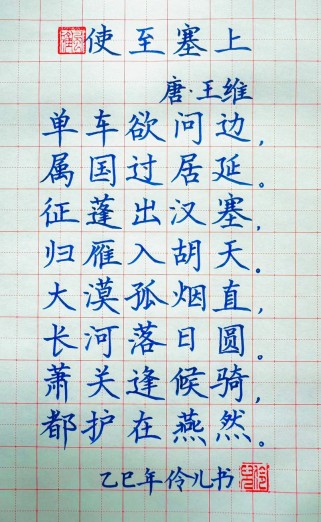 使至塞上
唐·王维
单车欲问边，
属国过居延。
征蓬出汉塞，
归雁入胡天。
大漠孤烟直，
长河落日圆。
萧关逢候骑，
都护在燕然。
乙巳年伶儿书